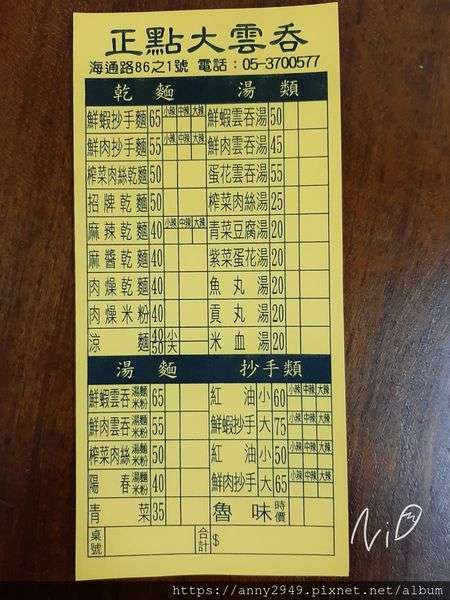 正點大雲吞
海通路86之1號 電話：05-3700577
乾麵
鮮蝦抄手麵 65 小辣 中辣 大辣
鮮肉抄手麵 55 小辣 中辣 大辣
榨菜肉絲乾麵 50
招牌乾麵 50
麻辣乾麵 40 小辣 中辣 大辣
麻醬乾麵 40
肉燥乾麵 40
肉燥米粉 40
涼麵 40 小
50 大
湯類
鮮蝦雲吞湯 50
鮮肉雲吞湯 45
蛋花雲吞湯 55
榨菜肉絲湯 25
青菜豆腐湯 20
紫菜蛋花湯 20
魚丸湯 20
貢丸湯 20
米血湯 20
湯麵
鮮蝦雲吞 湯麵 米粉 65
鮮肉雲吞 湯麵 米粉 55
榨菜肉絲 湯麵 米粉 50
陽春 湯麵 米粉 40
青菜 35
抄手類
紅油 小 60 小辣 中辣 大辣
鮮蝦抄手 大 75 小辣 中辣 大辣
紅油 小 50 小辣 中辣 大辣
鮮肉抄手 大 65 小辣 中辣 大辣
魯味 時價
桌號
合計 $
https://anny2949.pixnet.net/album